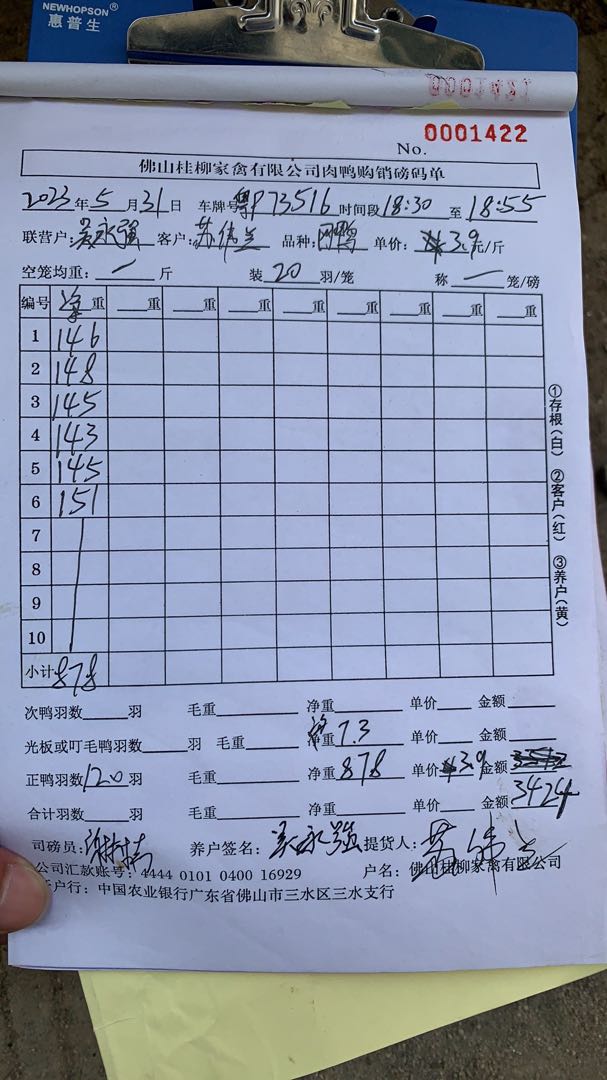 NEWHOPSON®
惠普生
No. 0001422
佛山桂柳家禽有限公司肉鸭购销磅码单
2023年5月31日 车牌号粤P73516 时间段18:30至18:55
联营户:吴永强 客户:苏伟兰 品种: 单价:3.9元/斤
空笼均重:一斤 装20羽/笼 称一笼/磅
编号 净重 重 重 重 重 重 重 重
1 146
2 148
3 145
4 143
5 145
6 151
7
8
9
10
小计 878
①存根(白) ②客户(红) ③养户(黄)
次鸭羽数 羽 毛重 净重 单价 金额
光板或叮毛鸭羽数 羽 毛重 净重7.3 单价 金额
正鸭羽数120羽 毛重 净重878 单价3.9 金额
合计羽数 羽 毛重 净重 单价 金额3424
司磅员: 养户签名:吴永强 提货人:苏伟兰
公司汇款账号:4444 0101 0400 16929 户名:佛山桂柳家禽有限公司
开户行:中国农业银行广东省佛山市三水区三水支行